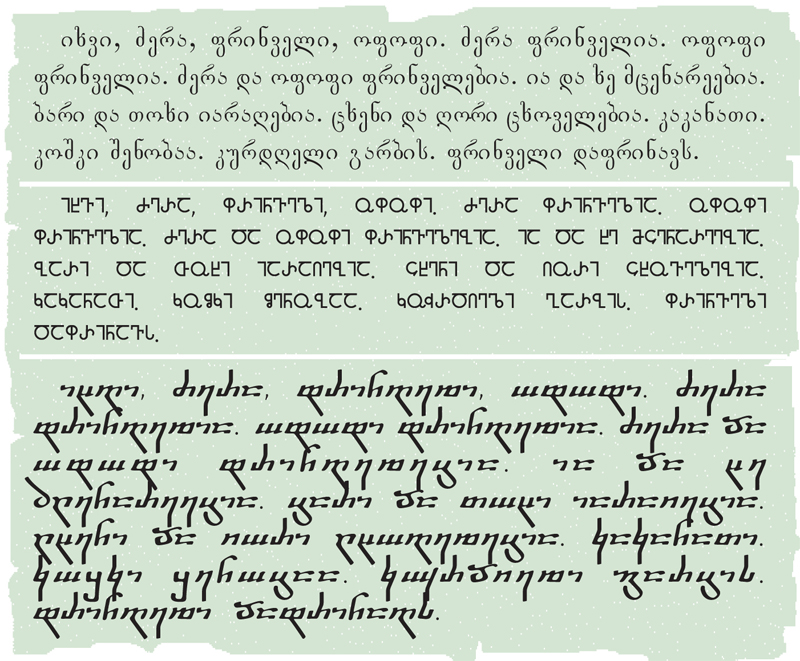 იხვი, ძერა, ფრინველი, ოფოფი. ძერა ფრინველია. ოფოფი
ფრინველია. ძერა და ოფოფი ფრინველებია. ია და ხე მცენარეებია.
ბარი და თოხი იარაღებია. ცხენი და ღორი ცხოველებია. კაკანათი.
კოშკი შენობაა. კურდღელი გარბის. ფრინველი დაფრინავს.
ႨႾႥႨ, ႻႤႰႠ, ႴႰႨႬႥႤႪႨ, ႭႴႭႴႨ. ႻႤႰႠ ႴႰႨႬႥႤႪႨႠ. ႭႴႭႴႨ
ႴႰႨႬႥႤႪႨႠ. ႻႤႰႠ ႣႠ ႭႴႭႴႨ ႴႰႨႬႥႤႪႤႡႨႠ. ႨႠ ႣႠ ႾႤ ႫႺႤႬႠႰႤႤႡႨႠ.
ႡႠႰႨ ႣႠ ႧႭႾႨ ႨႠႰႠႶႤႡႨႠ. ႺႾႤႬႨ ႣႠ ႶႭႰႨ ႺႾႭႥႤႪႤႡႨႠ.
ႩႠႩႠႬႠႧႨ. ႩႭႸႩႨ ႸႤႬႭႡႠႠ. ႩႳႰႣႶႤႪႨ ႢႠႰႡႨႱ. ႴႰႨႬႥႤႪႨ
ႣႠႴႰႨႬႠႥႱ.
ⴈⴞⴅⴈ, ⴛⴄⴐⴀ, ⴔⴐⴈⴌⴅⴄⴊⴈ, ⴍⴔⴍⴔⴈ. ⴛⴄⴐⴀ
ⴔⴐⴈⴌⴅⴄⴊⴈⴀ. ⴍⴔⴍⴔⴈ ⴔⴐⴈⴌⴅⴄⴊⴈⴀ. ⴛⴄⴐⴀ ⴃⴀ
ⴍⴔⴍⴔⴈ ⴔⴐⴈⴌⴅⴄⴊⴄⴁⴈⴀ. ⴈⴀ ⴃⴀ ⴞⴄ
ⴋⴚⴄⴌⴀⴐⴄⴄⴁⴈⴀ. ⴁⴀⴐⴈ ⴃⴀ ⴇⴍⴞⴈ ⴈⴀⴐⴀⴖⴄⴁⴈⴀ.
ⴚⴞⴄⴌⴈ ⴃⴀ ⴖⴍⴐⴈ ⴚⴞⴍⴅⴄⴊⴄⴁⴈⴀ. ⴉⴀⴉⴀⴌⴀⴇⴈ.
ⴉⴍⴘⴉⴈ ⴘⴄⴌⴍⴁⴀⴀ. ⴉⴓⴐⴃⴖⴄⴊⴈ ⴂⴀⴐⴁⴈⴑ.
ⴔⴐⴈⴌⴅⴄⴊⴈ ⴃⴀⴔⴐⴈⴌⴀⴅⴑ.